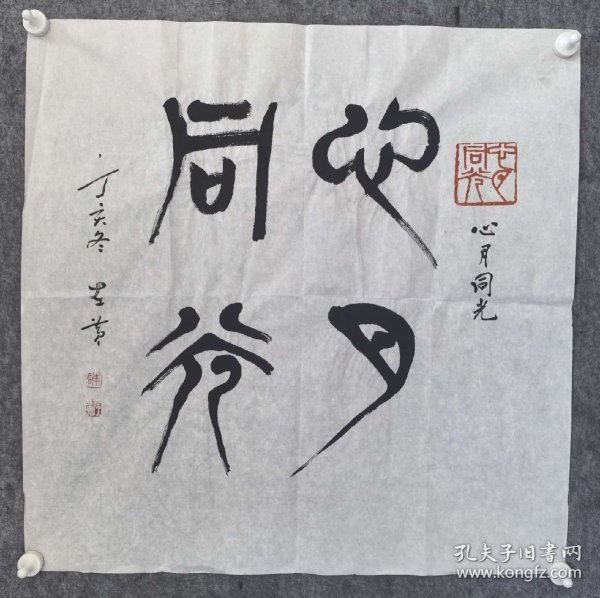 心月同光
心月
同光
丁亥冬
孔夫子旧书网
www.kongfz.com